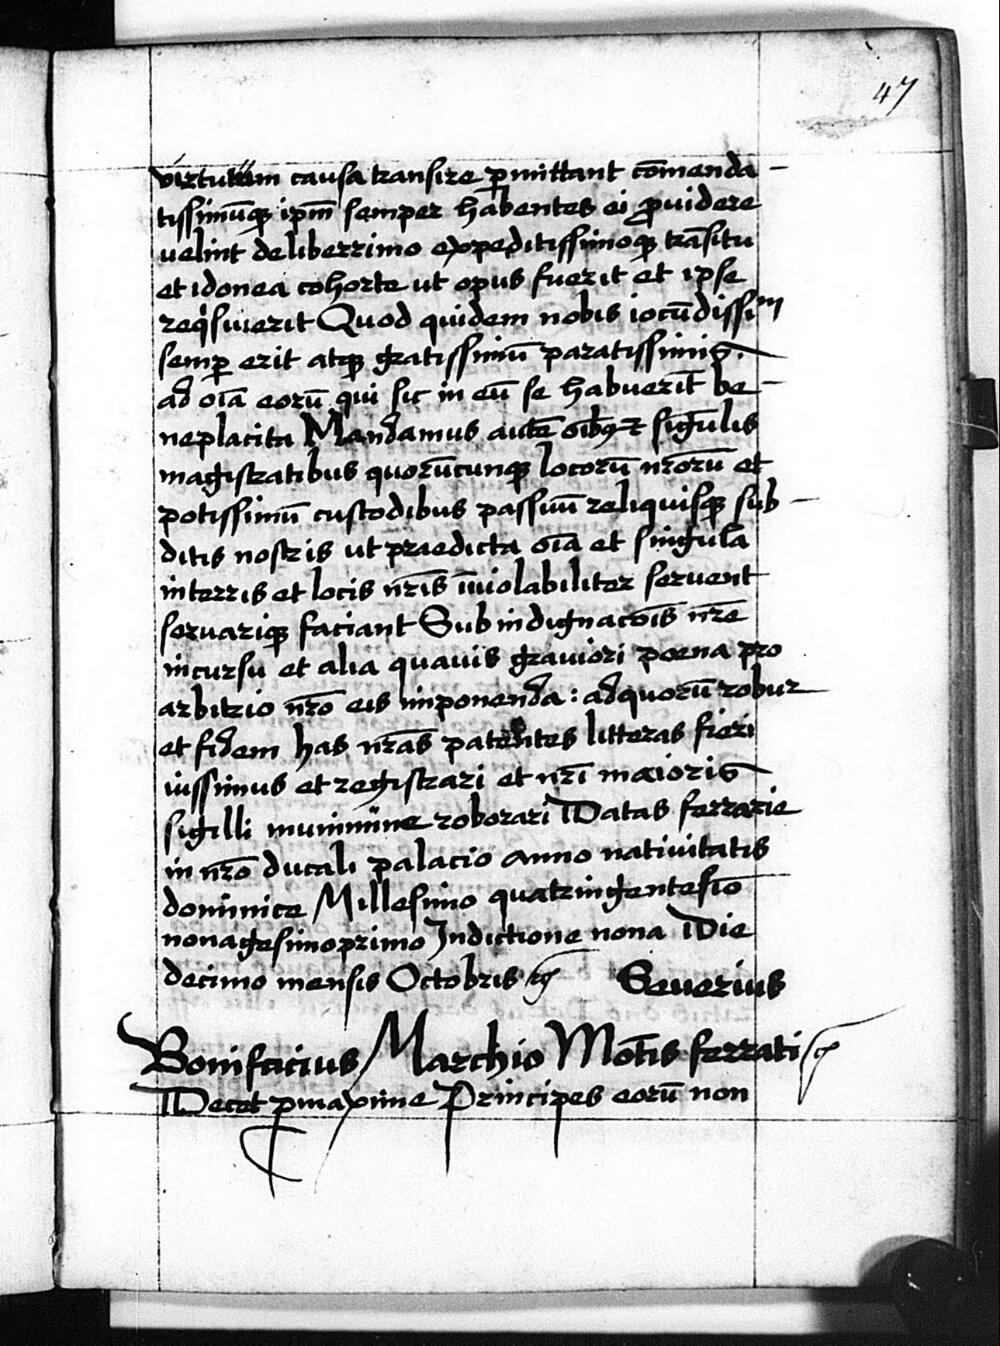 47
virtutum causa transire p̲mittant com̄enda
tissimūqꝫ ip̄m semper habentes ei ꝓuidere
uelint deliberrimo expeditissimoqꝫ trāsitu
et idonea cohorte ut opus fuerit et ipse
reqͥsiuerit Quod quidem nobis iocūdissim̄
semꝑ erit atqꝫ gratissimū paratissimis.
ad oīa eorū qui sic in eū se habuerīt be
neplacita Mandamus autē oībꝫ ⁊ sigūlis
magistratibus quorūcunqꝫ locorū nr̄orū et
potissimū custodibus passuū reliquisqꝫ sub
ditis nostris ut praedicta oīa et singula
in terris et locis nr̄is īuiolabiliter seruent
seruariqꝫ faciant Sub indignacōīs nr̄e
incursu et alia quauis grauiori poena pro
arbitrio nr̄o eis imponenda : ad quorū robur
et fidem has nr̄as patentes litteras fieri
iussimus et registrari et nr̄i maioris
sigilli munimine roborari Datas ferrarie
in nr̄o ducali palacio anno natiuitatis
dominice Millesimo quatringentesīo
nonagesimoprimo Indictione nona Die
decimo mensis Octobris Seuerius
Bonifacius Marchio Mōtis ferrati
Decet ꝑmaxime Principes eorū non